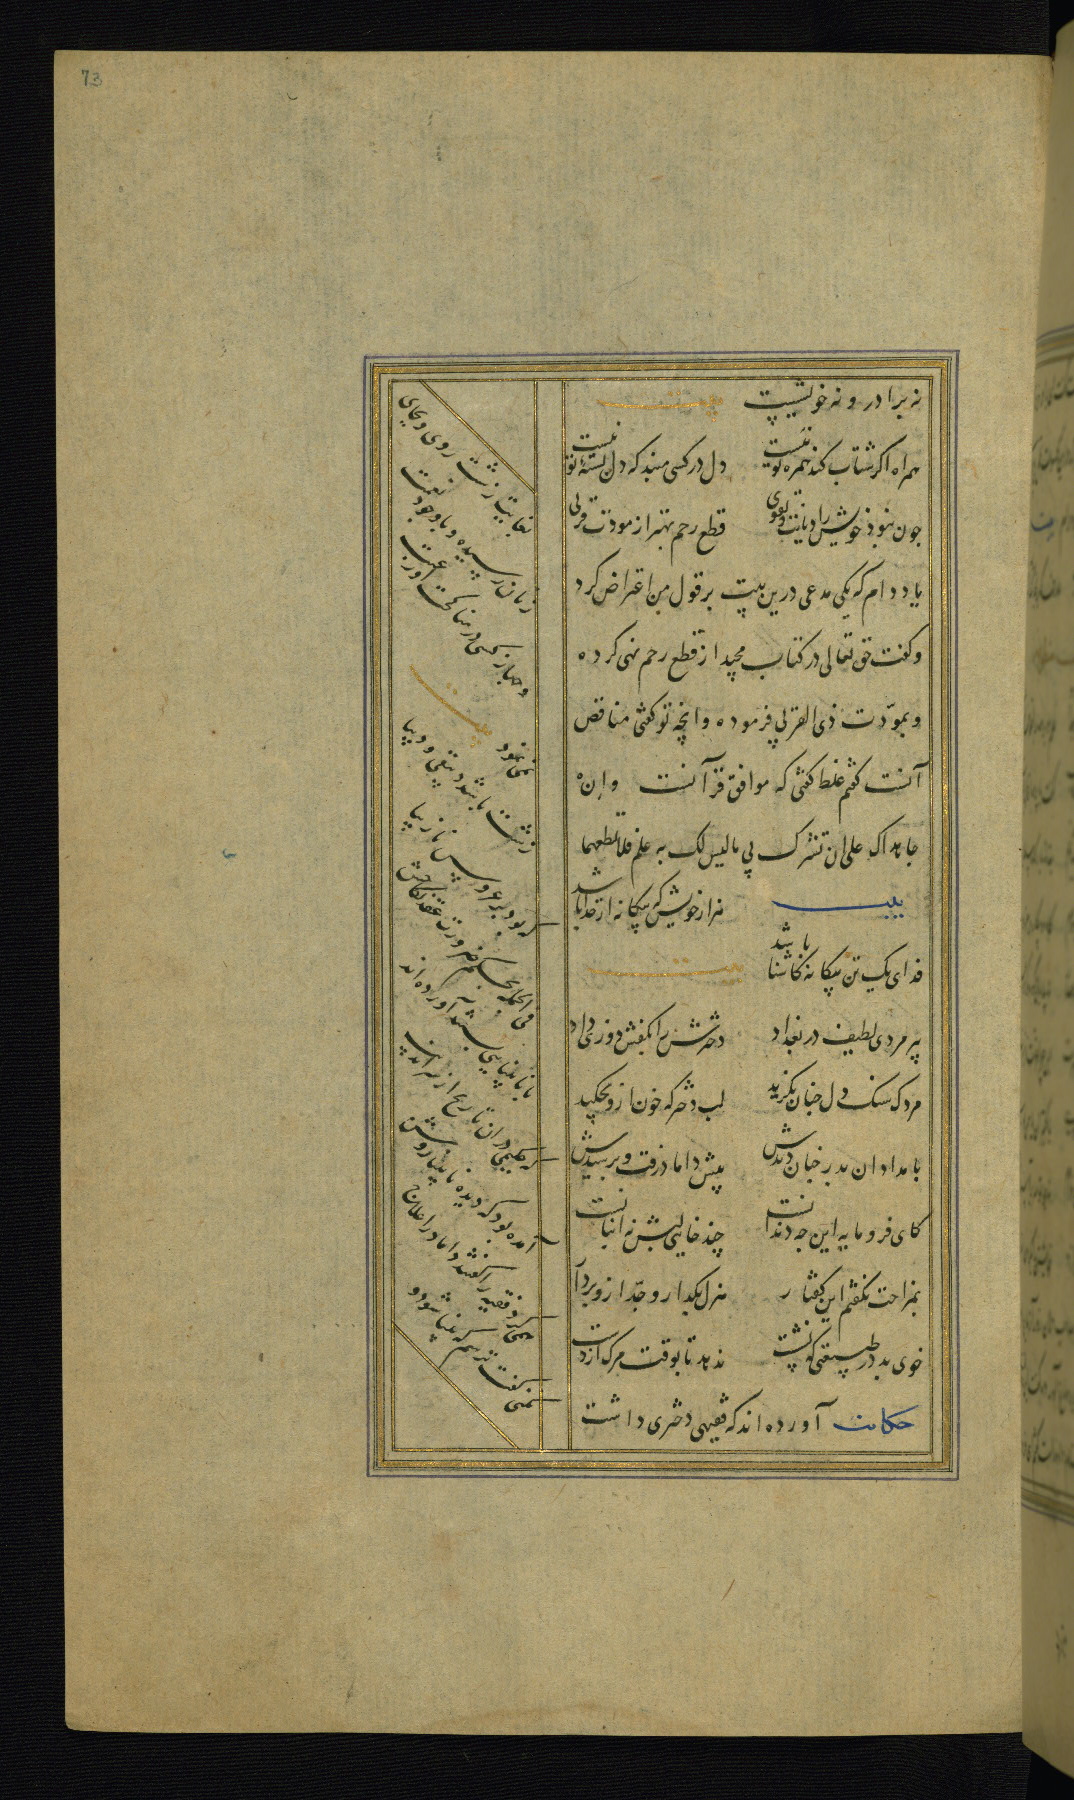 73
نه برادر و نه خویشیت بیت
همراه اکر شتاب کند همره تو نیست دل در کسی مبند که دل بستهٔ تو نیست
جون نبوذ خویش را دیانت و تقوی قطع رحم بهتر از مودت قربی
یاد دارم که یکی مدعی درین بیت بر قول من اعتراض کرد
و کفت حق تعالی در کتاب مجید از قطع رحم نهی کرده
و بمودّت ذی القربی فرموده و انچه تو کفتی مناقض
آنست کفتم غلط کفتی که موافق قرآنست وإن
جاهداک علی ان تشرک بی ما لیس لک به علم فلا تطعهما
بیت هزار خویش که بیکانه از خدا باشد
فدای یک تن بیکانه کاشنا باشد
پیر مردی لطیف در بغداد دخترش را بکفش دوزی داد
مردک سنک دل جنان بکزید لب دختر که خون ازو بجکید
بامدادان پدر جنان دیدش پیش داماد رفت و پرسیدش
کای فرومایه این جه دندانست چند خایی لبش نه انبانست
بمزاحت نکفتم این کفتار هزل بکذار و جد ازو بردار
خوی بد در طبیعتی که نشست ندهد تا بوقت مرک از دست
حکایت آورده اند که فقیهی دختری داشت
بغایت زشت روی و بجای
زنان رسیده و با وجود نعمت
و جهاز کسی در مناکحت او رغبت
نمی نمود
زشت باشد دبیقی و دیبا
که بود بر عروس نازیبا
فی الجمله بحکم ضرورت عقد نکاحش
با نابینایی ببستند آورده اند
که حکیمی در ان تاریخ از سراندیب
آمده بود که دیده نابینا روشن
همی کرد فقیه را کفتند داماد را علاج
نمی کنی کفت ترسم که بینا شود و